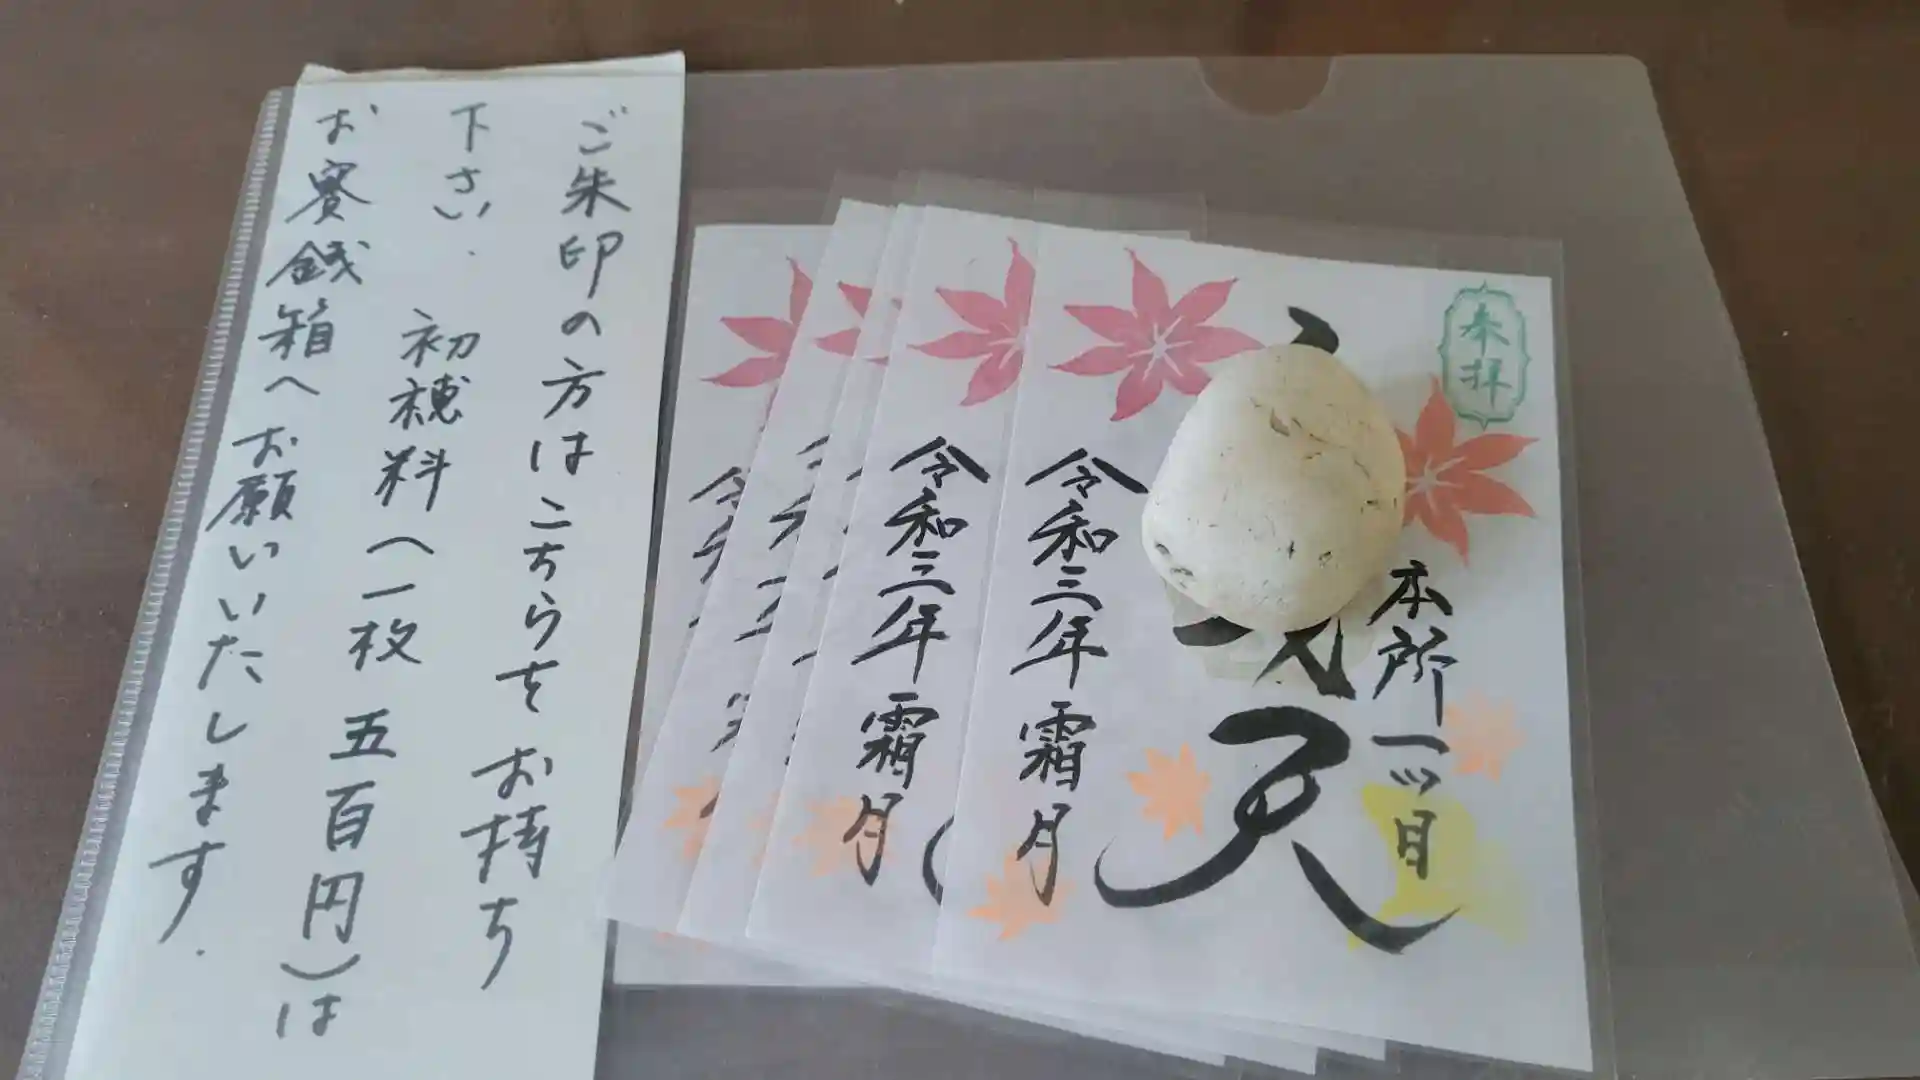 ご朱印の方はこちらをお持ち
下さい.初穂料(一枚 五百円)は
お賽銭箱へお願いいたします.
奉拝
本所一ッ目
天
令和三年 霜月
令和三年 霜月